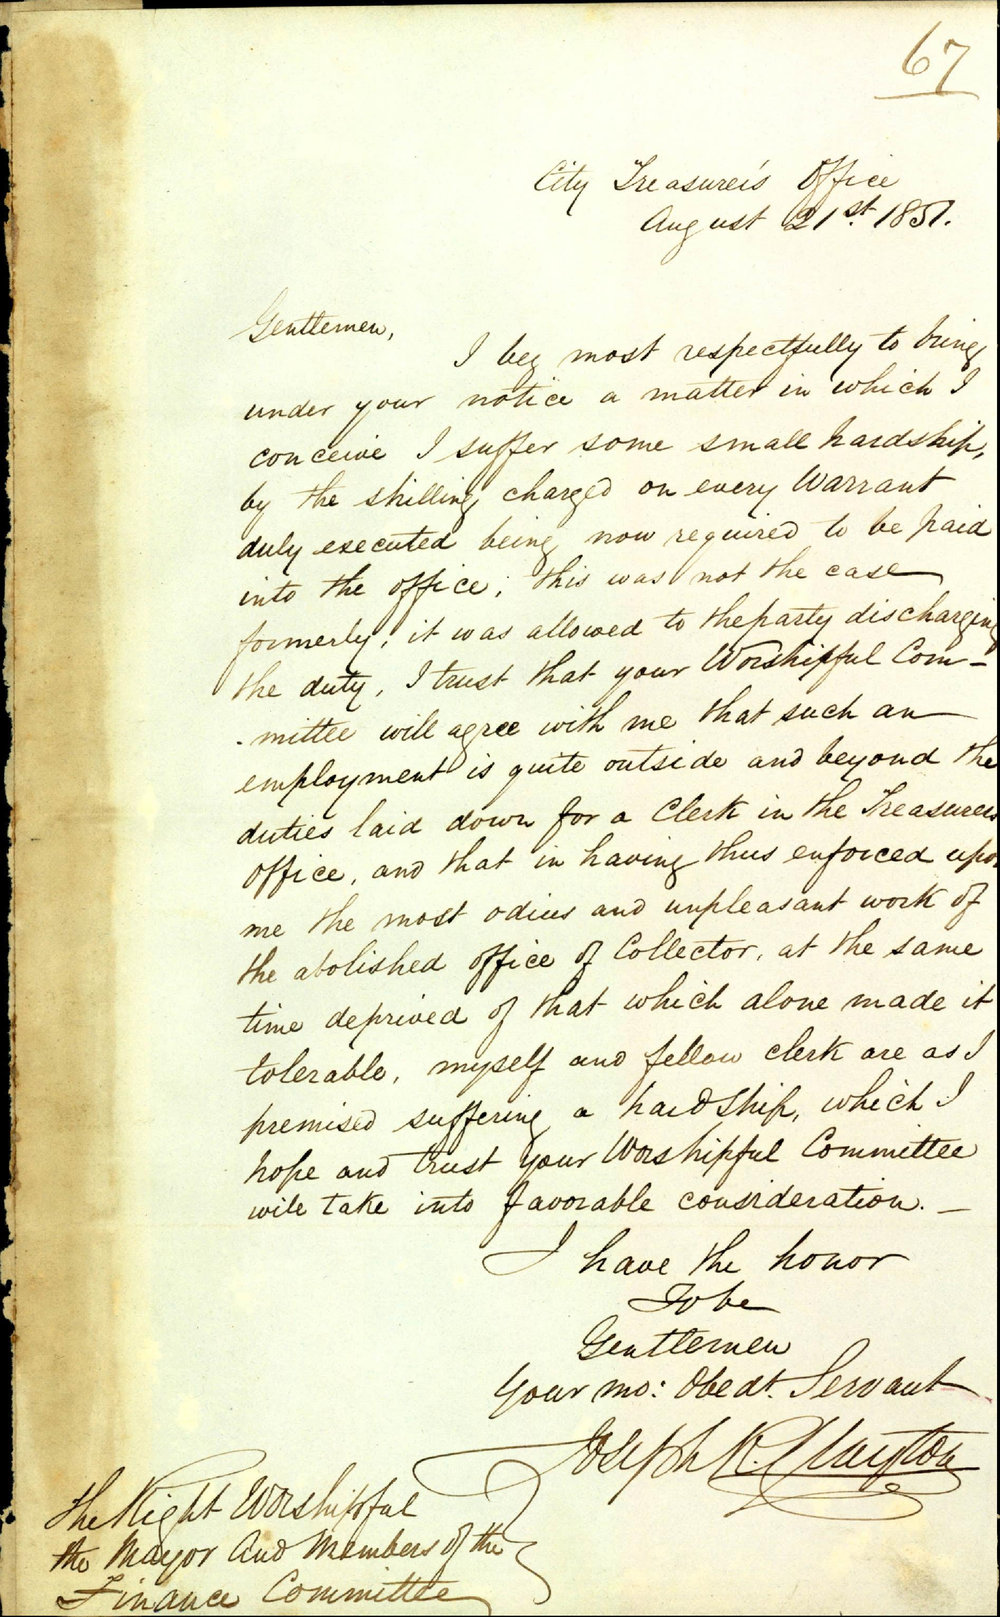 67
City Treasurer's Office
August 21st. 1851.
Gentlemen,
I beg most respectfully to bring
under your notice a matter in which I
conceive I suffer some small hardship,
by the shilling charged on every Warrant
duly executed being now required to be paid
into the office; this was not the case
formerly; it was allowed to the party discharging
the duty, I trust that your Worshipful Com-
-mittee will agree with me that such an
employment is quite outside and beyond the
duties laid down for a Clerk in the Treasurers
office, and that in having thus enforced upon
me the most odius and unpleasant work of
the abolished office of Collector, at the same
time deprived of that which alone made it
tolerable, myself and fellow clerk are as I
premised suffering a hardship, which I
hope and trust your Worshipful Committee
will take into favorable consideration. —
I have the honor
To be
Gentlemen
Your mo: Obedt. Servant
Joseph K. Clayton
The Right Worshipful
the Mayor and Members of the
Finance Committee